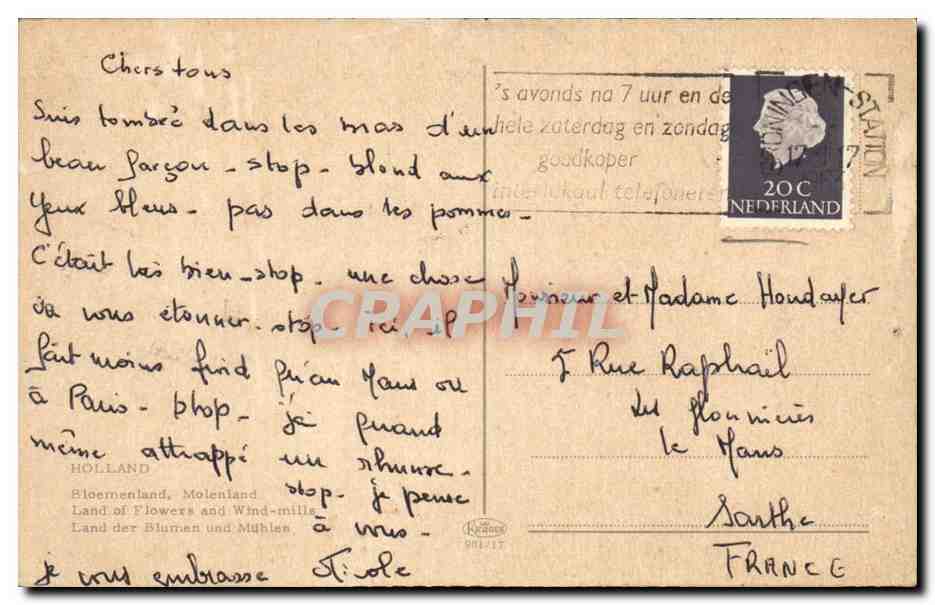 Chers tous
Suis tombée dans les bras d'un
beau garçon - stop - blond aux
yeux bleus - pas dans les pommes -
C'était très bien - stop - une chose
va vous étonner - stop - ici, il
fait moins froid qu'au Mans ou
à Paris - stop - j'ai quand
même attrappé un rhume -
stop - je pense
à vous -
je vous embrasse
HOLLAND
Bloemenland, Molenland
Land of Flowers and Wind-mills
Land der Blumen und Mühlen
KRÜGER
981/17
's avonds na 7 uur en de
hele zaterdag en zondag
goedkoper
interlokaal telefoneren
GRONINGEN-STATION
20 C
NEDERLAND
Monsieur et Madame Houdayer
5 Rue Raphaël
Les
Le Mans
Sarthe
FRANCE
CPAPHIL